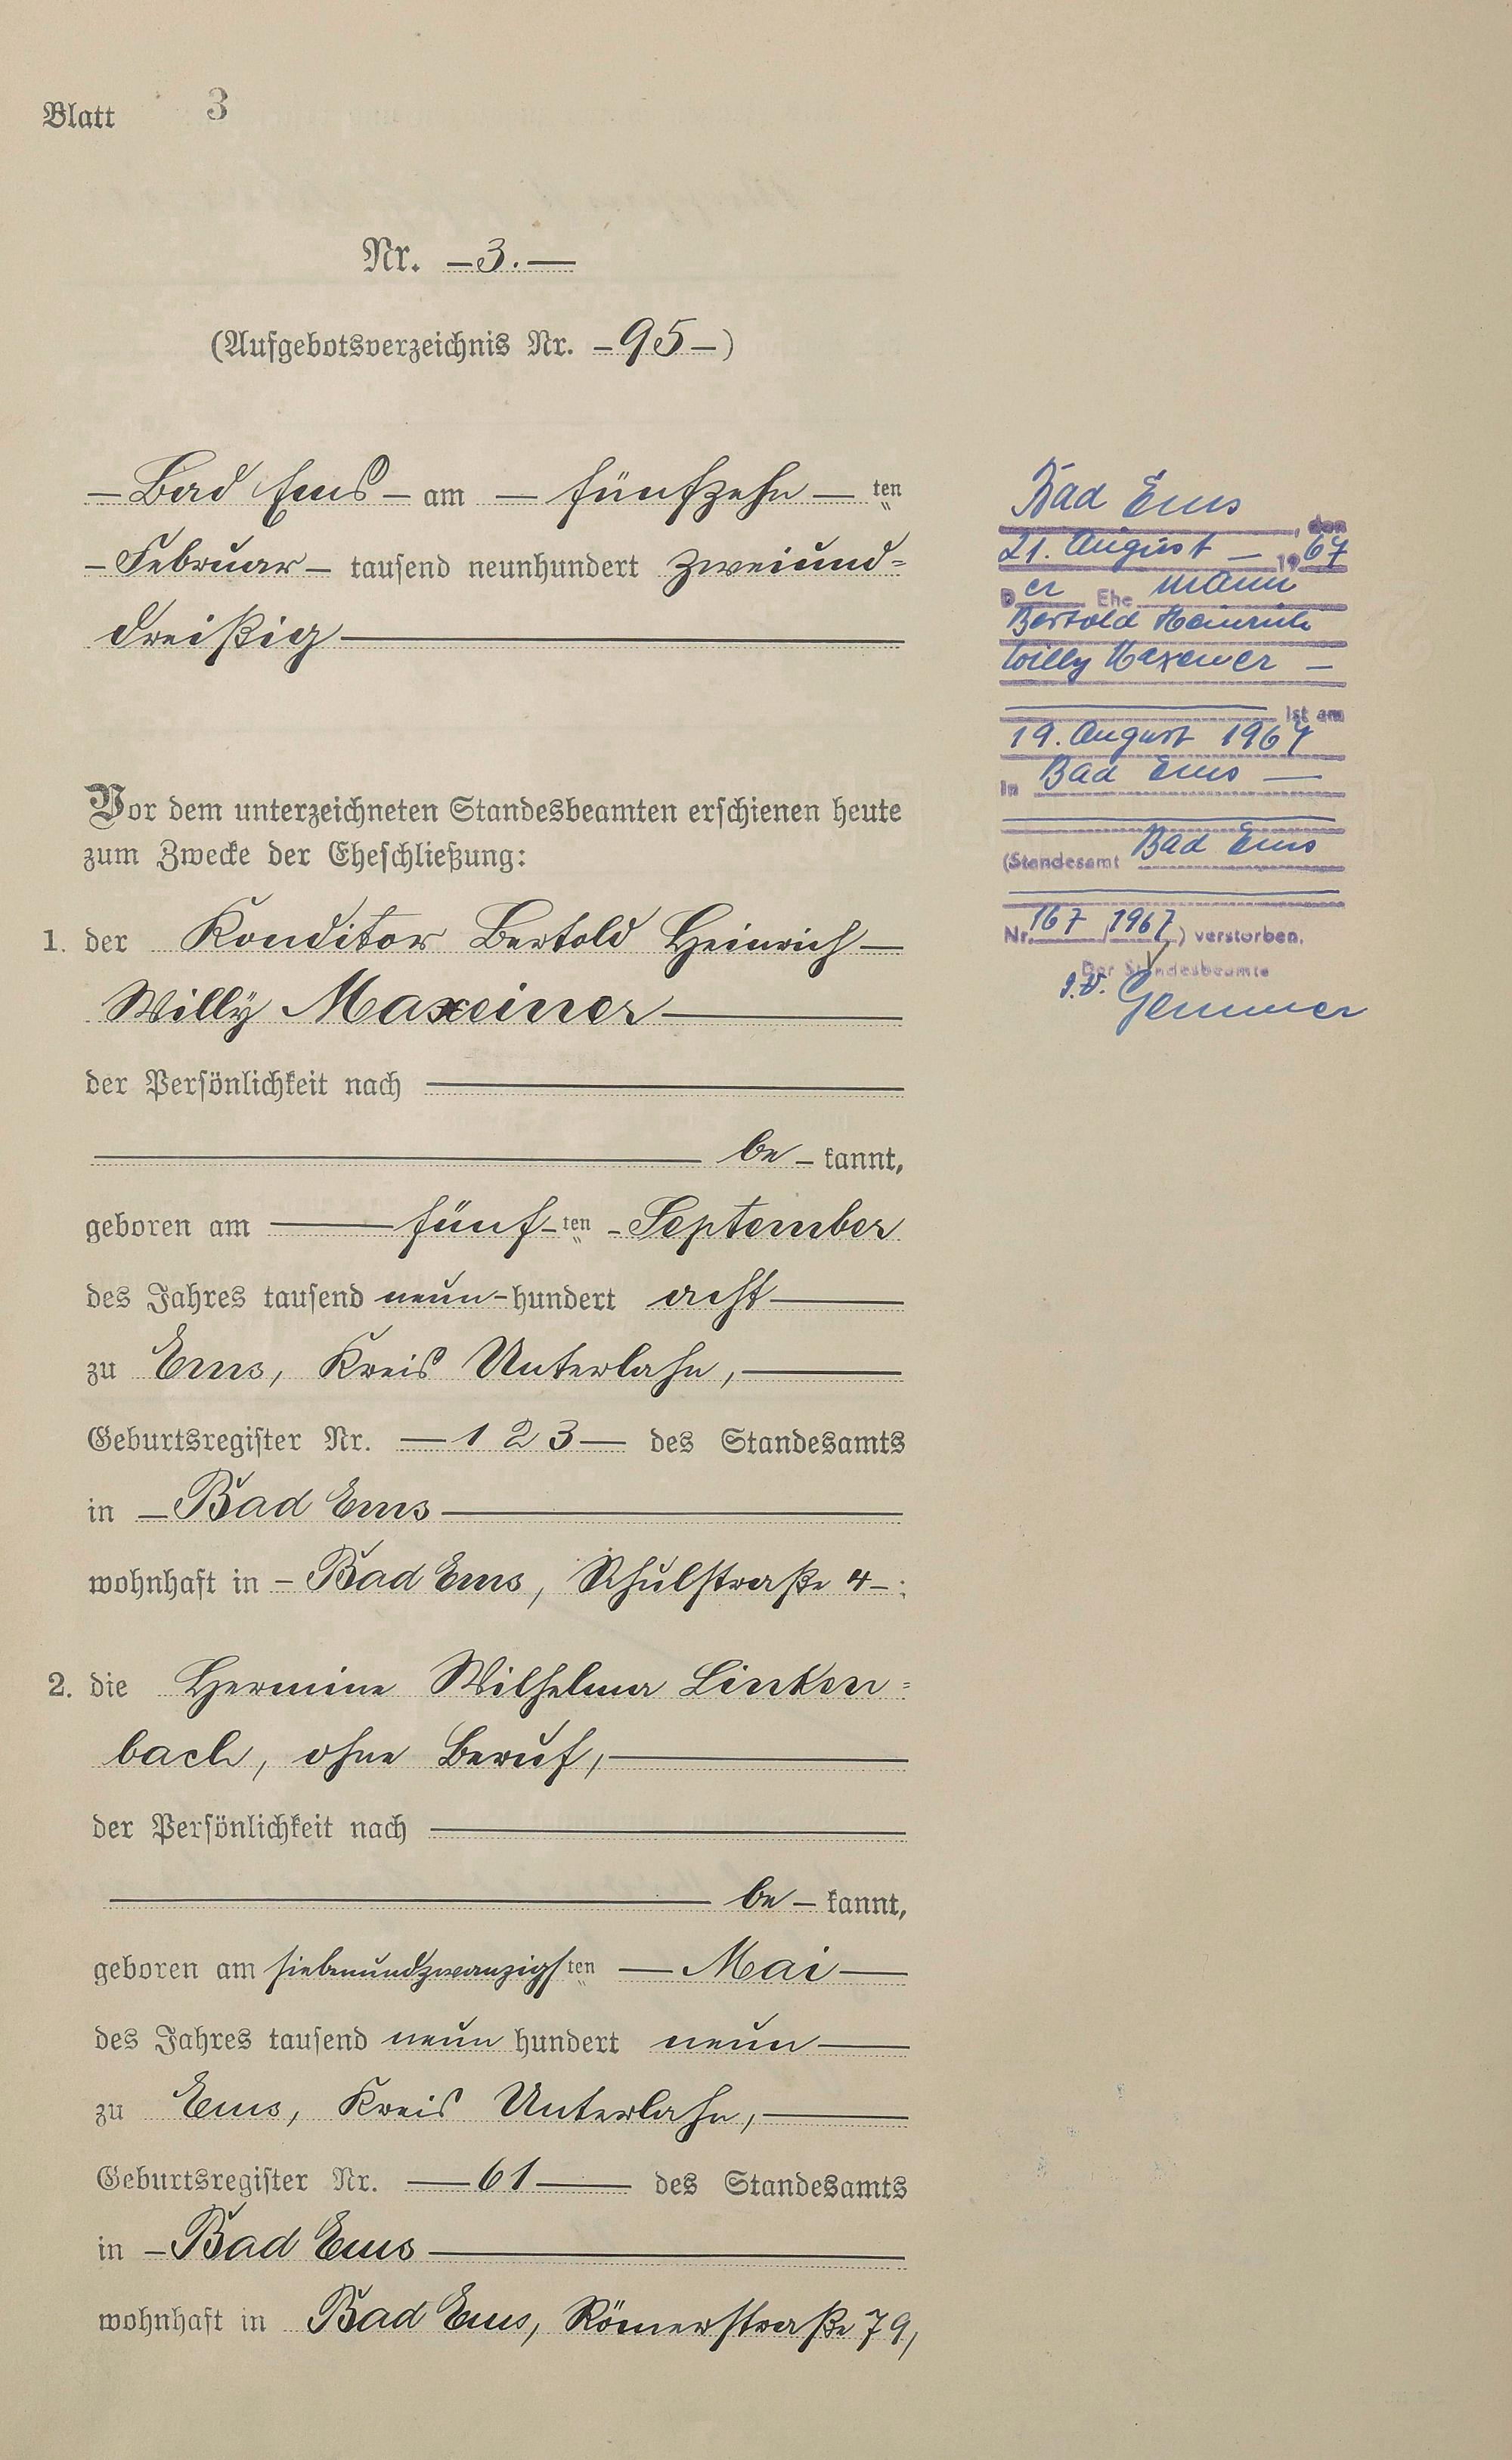 Blatt 3
Nr. — 3. —
(Aufgebotsverzeichnis Nr. — 95 —)
— Bad Ems — am — fünfzehn — ten
— Februar — tausend neunhundert zweiund=
dreißig —
Vor dem unterzeichneten Standesbeamten erschienen heute
zum Zwecke der Eheschließung:
1. der Konditor Bertold Heinrich —
Willy Maxeiner —
der Persönlichkeit nach —
— be — kannt,
geboren am — fünf — ten — September
des Jahres tausend neun — hundert acht —
zu Ems, Kreis Unterlahn, —
Geburtsregister Nr. — 123 — des Standesamts
in — Bad Ems —
wohnhaft in — Bad Ems, Schulstraße 4 — ;
2. die Hermine Wilhelma Linken=
bach, ohne Beruf, —
der Persönlichkeit nach —
— be — kannt,
geboren am siebenundzwanzigsten — Mai —
des Jahres tausend neun hundert neun —
zu Ems, Kreis Unterlahn, —
Geburtsregister Nr. — 61 — des Standesamts
in — Bad Ems —
wohnhaft in Bad Ems, Römerstraße 79,
Bad Ems, den
21. August — 1967
Der Ehemann
Bertold Heinrich
Willy Maxeiner —
— ist am
19. August 1967
in Bad Ems —
(Standesamt Bad Ems
Nr. 167/1967) verstorben.
Der Standesbeamte
I.V. Gemmer